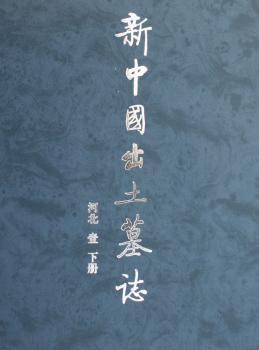 新中國出土墓誌
河北 壹 下册